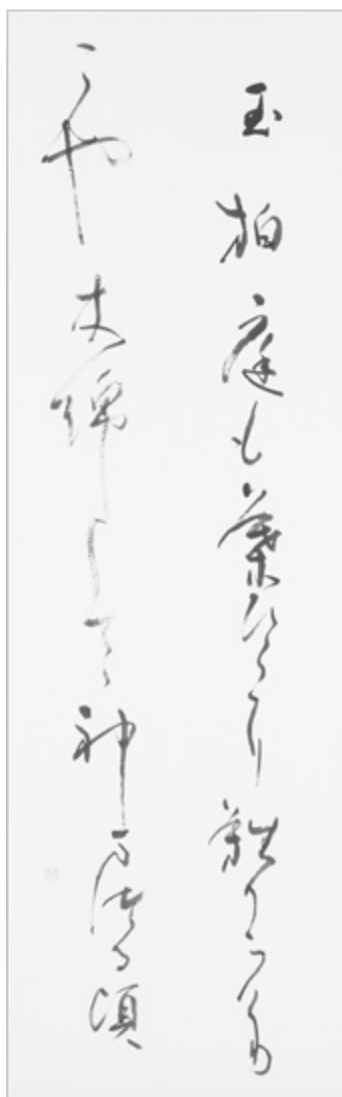 玉柏庭も葉ひろになりにけり
こや木綿してて神まつる頃